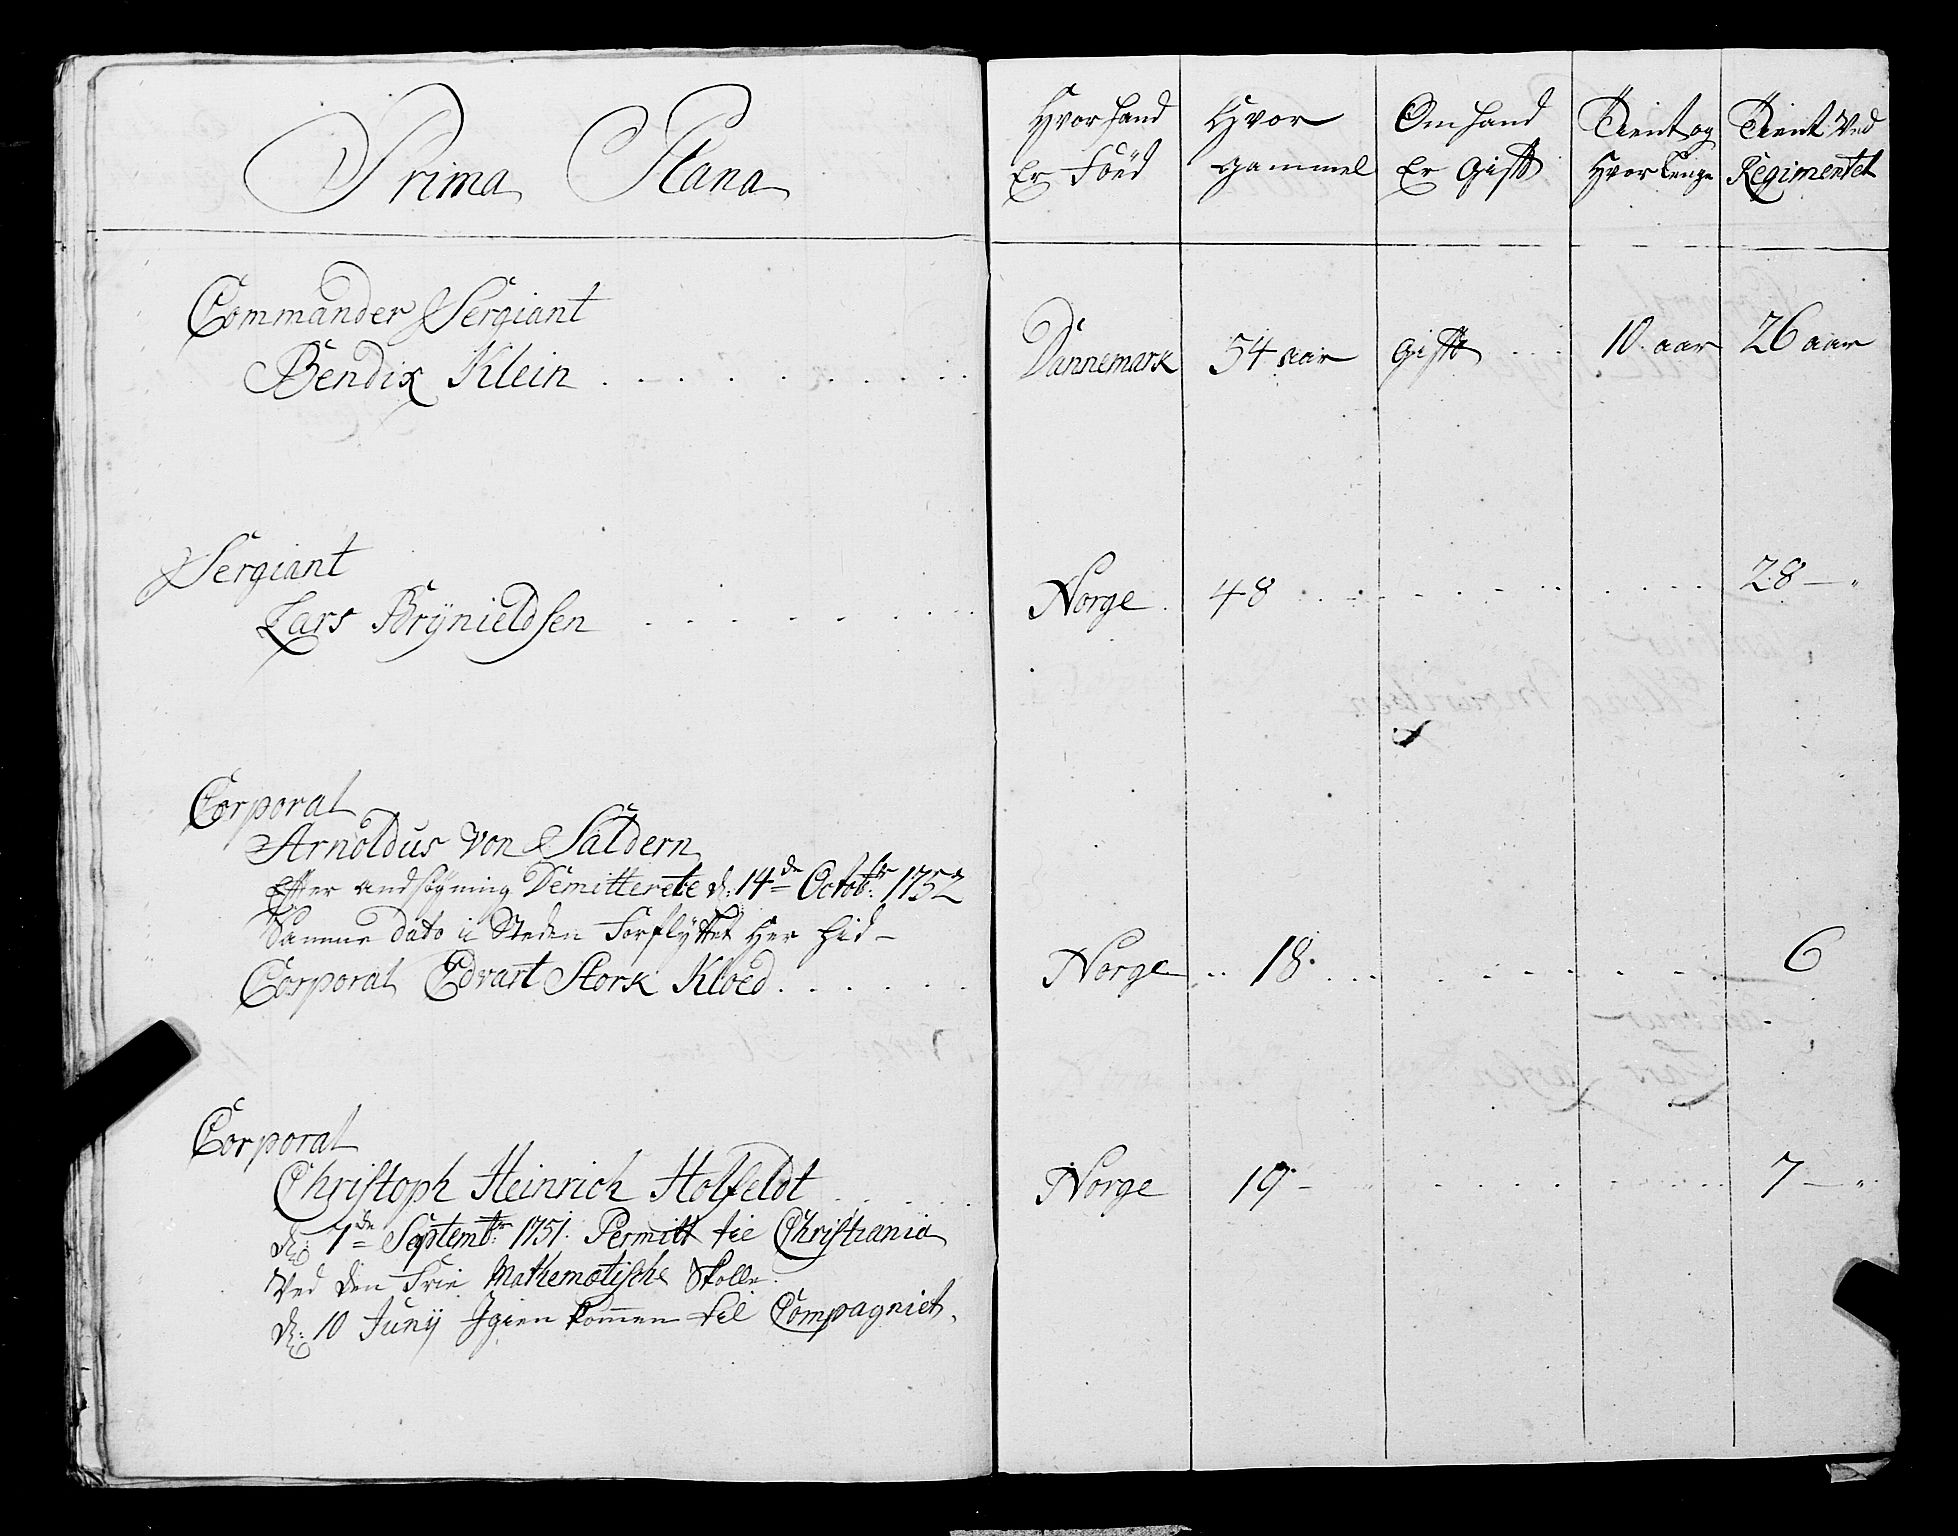 Prima Plana
Hvor hand Er Föed
Hvor gammel
Om hand Er Gift
Tient og Hvor Lenge
Tient Ved Regimentet
Commander Sergiant
Bendix Klein
Dannemark 54 aar Gift 10 aar 26 aar
Sergiant
Lars Brÿnieldsen
Norge 48 28 — "
Corporal
Arnoldus von Saldern
Efter andsøgning Demitterete d: 14de Octobr: 1752
Samme dato i Steden Forflÿttet Her hid —
Corporal Edvart Stork Kloed
Norge 18 6
Corporal
Christoph Heinrich Holfeldt
Norge 19 — 7 — "
d: 1de Septembr: 1751. Permitt til Christiania
Ved den Frie Mathematische Skolle.
d: 10 Junÿ Igien kommen til Compagniet.